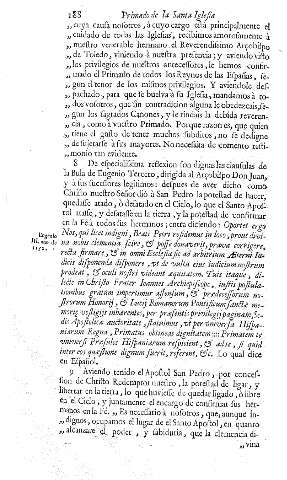 188 Primado de la Santa Iglesia
„ cuya causa nosotros, à cuyo cargo està principalmente el
„ cuidado de todas las Iglesias, recibimos amorosamente à
„ nuestro venerable hermano el Reverendissimo Arçobispo
„ de Toledo, viniendo à nuestra presencia; y aviendo visto
„ los privilegios de nuestros antecessores, le hemos confir-
„ mado el Primado de todos los Reynos de las Españas, se-
„ gun el tenor de los mismos privilegios. Y aviendole des-
„ pachado, para que se buelva à su Iglesia, mandamos à to-
„ dos vosotros, que sin contradicion alguna le obedezcais, se-
„ gun los sagrados Canones, y le rindais la debida reveren-
„ cia, como à vuestro Primado. Porque razon es, que quien
„ tiene el gusto de tener muchos subditos, no se desdigne
„ de sujetarse à sus mayores. No necessita de comento testi-
„ monio tan evidente.
8 De especialissima reflexion son dignas las clausulas de
la Bula de Eugenio Tercero, dirigida al Arçobispo Don Juan,
y à sus sucessores legitimos: despues de aver dicho como
Christo nuestro Señor diò à San Pedro la potestad de hacer,
quedasse atado, ò desatado en el Cielo, lo que el Santo Apos-
tol atasse, y desatasse en la tierra, y la potestad de confirmar
en la Fè à todos sus hermanos; entra diciendo: Oportet ergo
Nos, qui licet indigni, Beati Petri residemus in loco, prout divi-
Eugenio na nobis clementia scire, & posse donaverit, prava corrigere,
III. año de recta firmare, & in omni Ecclesia sic ad arbitrium Æterni Iu-
dicis disponenda disponere, ut de vultu eius iudicium nostrum
prodeat, & oculi nostri videant æquitatem. Tuis itaque, di-
lecte in Christo Frater Ioannes Archiepiscope, iustis postula-
tionibus gratum impertimur assensum, & prædecessorum no-
strorum Honorij, & Lucij Romanorum Pontificum sanctæ me-
moriæ vestigijs inhærentes, per præsentis privilegij paginam, Se-
dis Apostolicæ auctoritate, statuimus, ut per universa Hispa-
niarum Regna, Primatus obtineas dignitatem::: Primatem te
universi Præsules Hispaniarum respicient, & ad te, si quid
inter eos quæstione dignum fuerit, referent, &c. Lo qual dice
en Español.
9 Aviendo tenido el Apostol San Pedro, por conces-
sion de Christo Redemptor nuestro, la potestad de ligar, y
libertar en la tierra, lo que huviesse de quedar ligado, ò libre
en el Cielo, y juntamente el encargo de confirmar sus her-
manos en la Fè. „ Es necessario à nosotros, que, aunque in-
„ dignos, ocupamos el lugar de el Santo Apostol, en quanto
„ alcançare el poder, y sabiduria, que la clemencia di-
„ vina